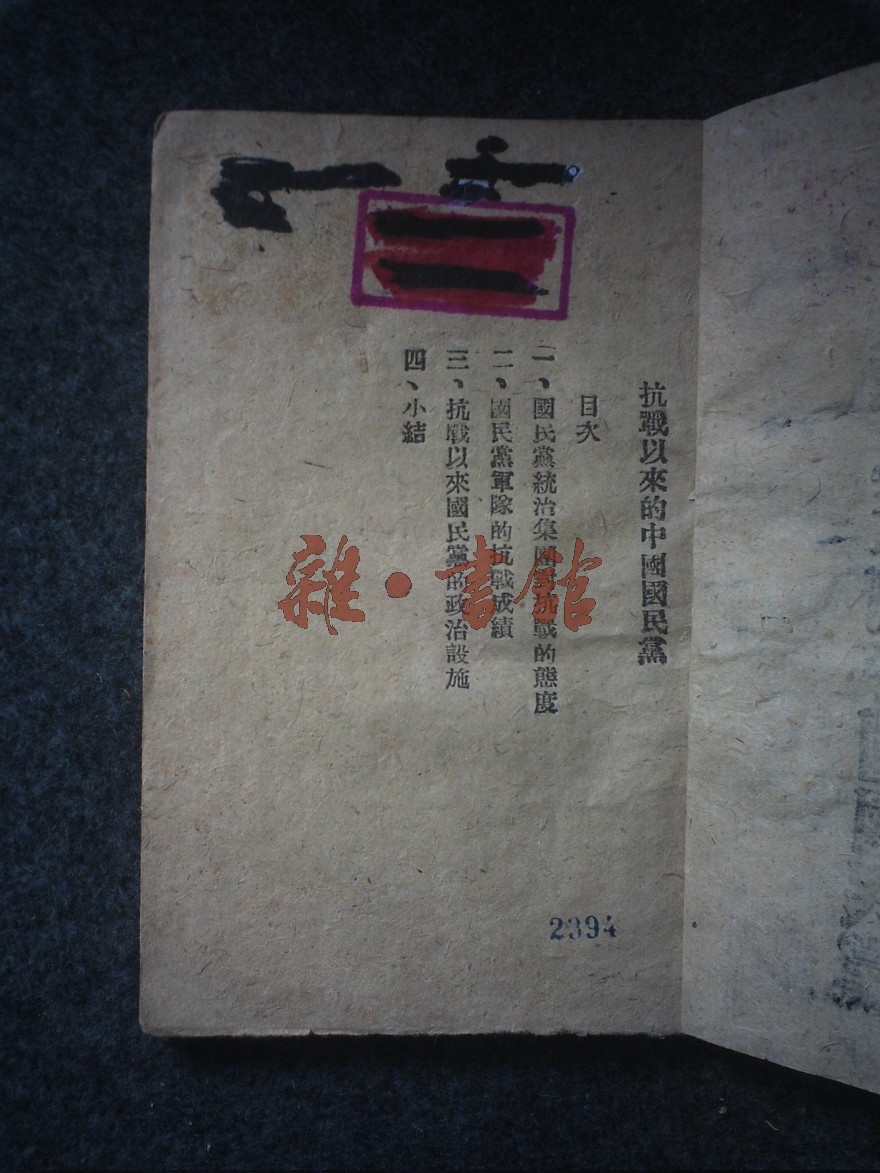 抗戰以來的中國國民黨
目次
一、國民黨統治集團對抗戰的態度
二、國民黨軍隊的抗戰成績
三、抗戰以來國民黨的政治設施
四、小結
2394
雜·書館